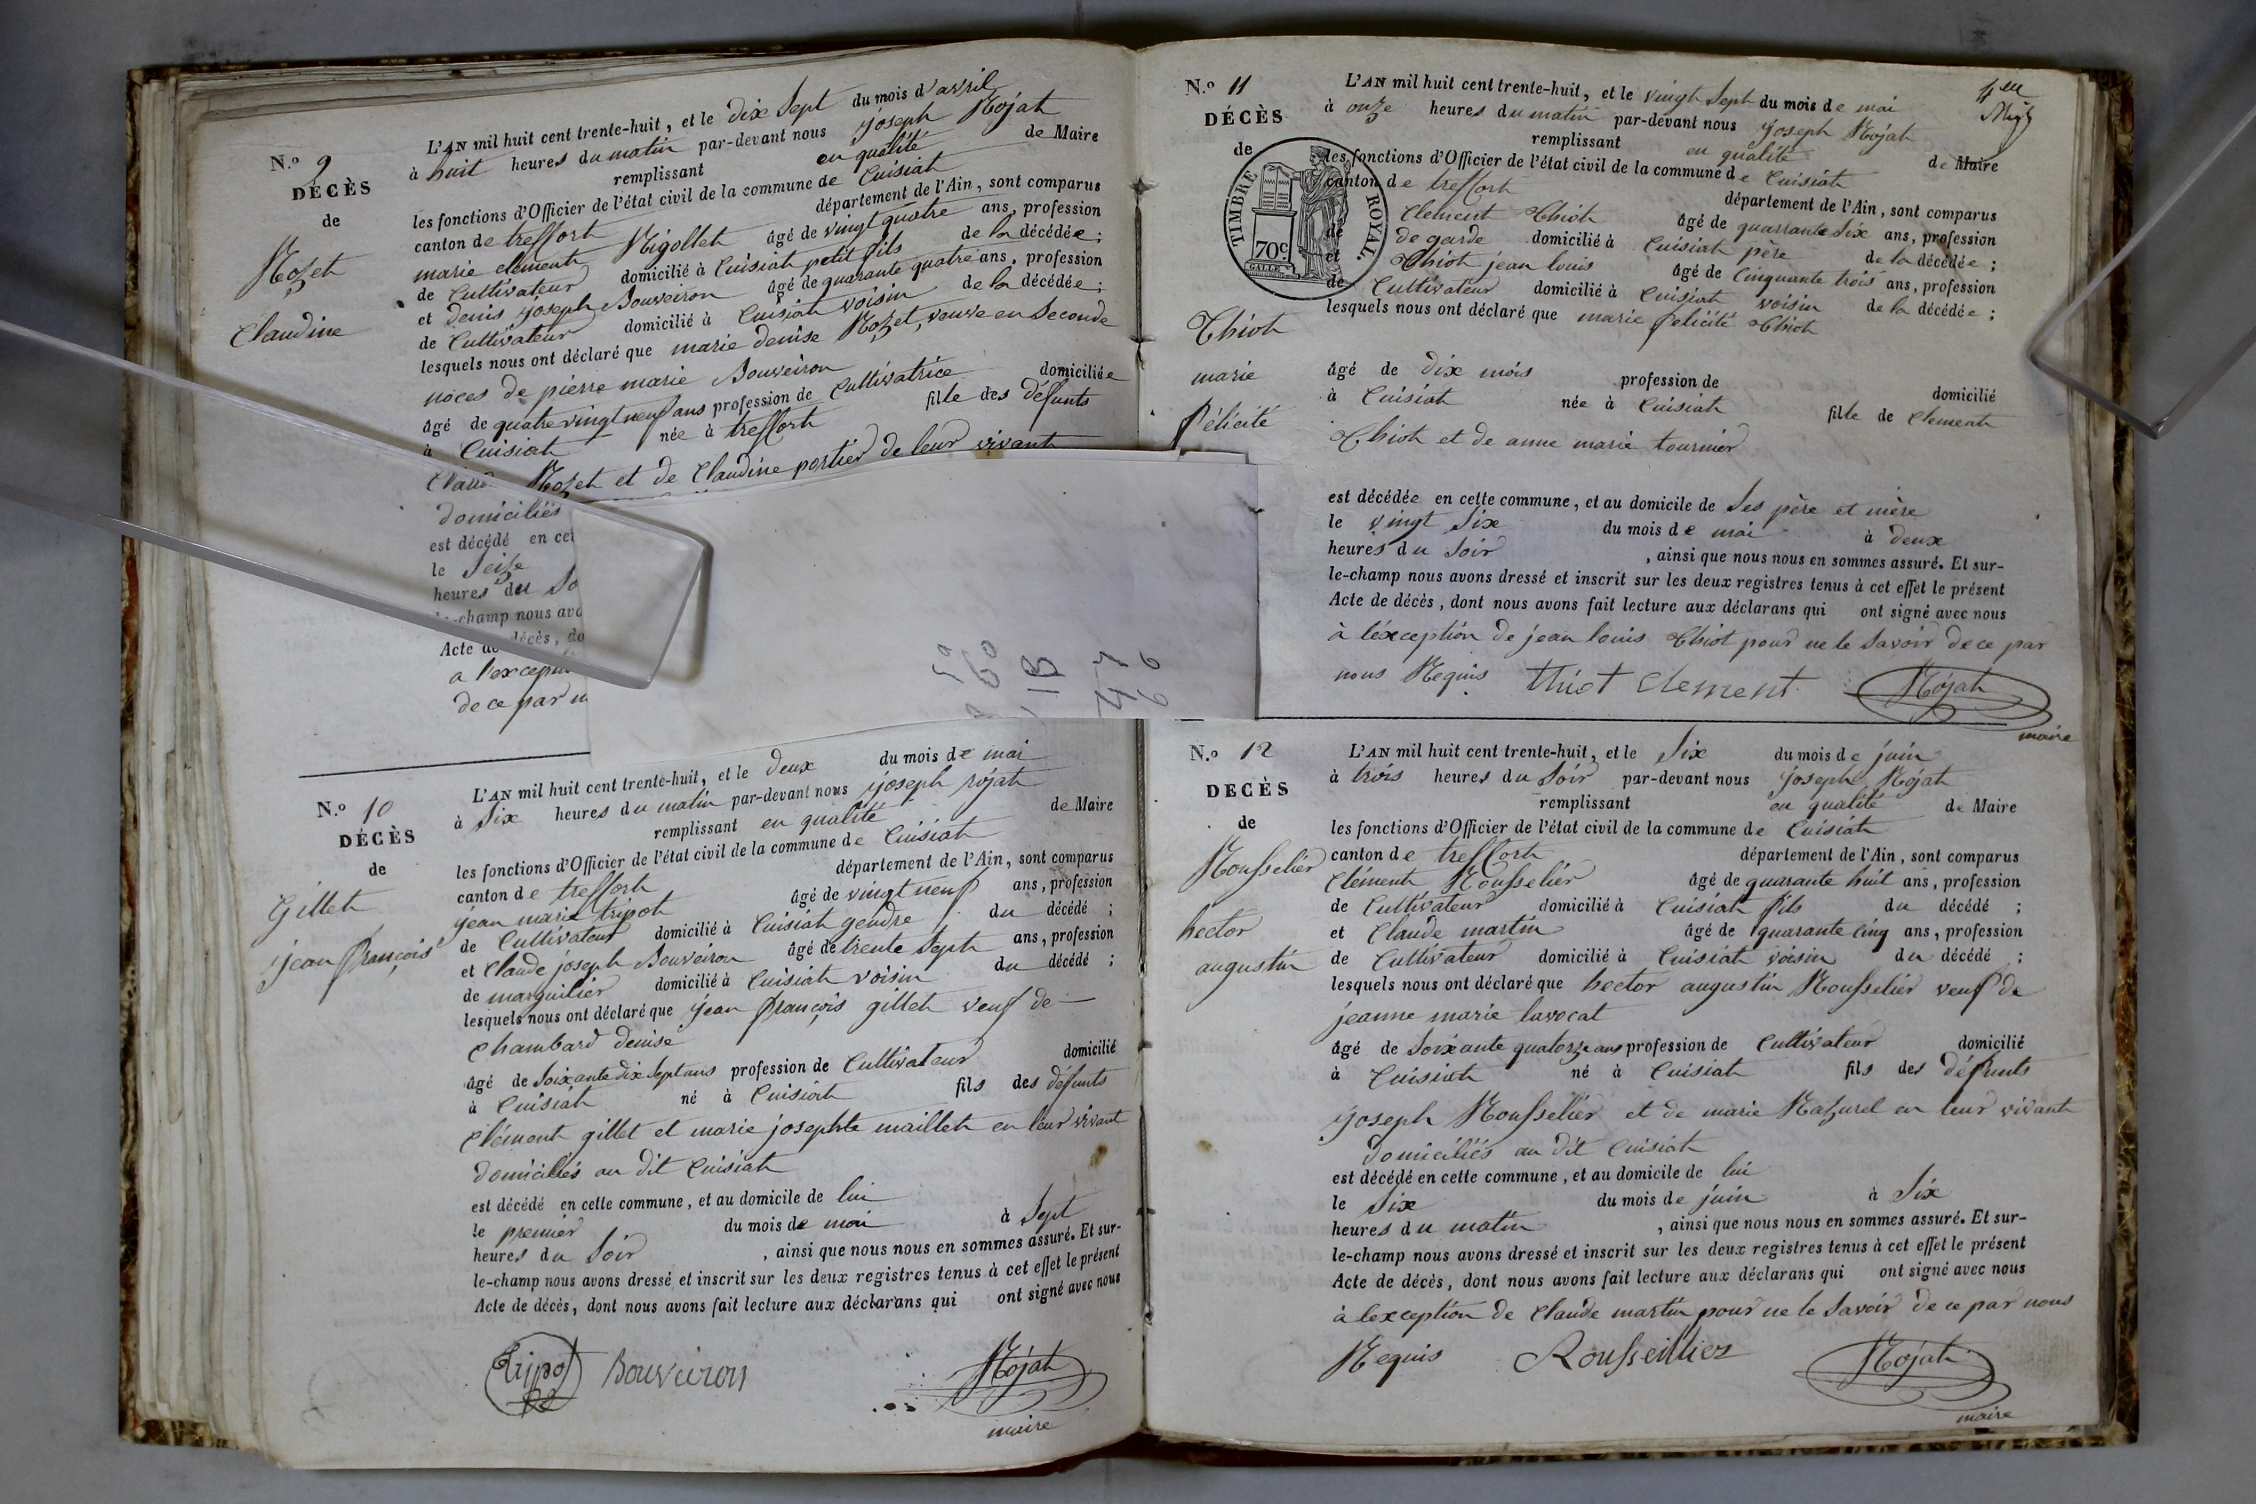 N.º 9
DÉCÈS
de
Rozet
Claudine
L'AN mil huit cent trente-huit, et le dix sept du mois d'avril
à huit heures du matin par-devant nous joseph Rojat
remplissant en qualité de Maire
les fonctions d'Officier de l'état civil de la commune de Cuisiat
canton de treffort département de l'Ain, sont comparus
marie clement Rigollet âgé de vingt quatre ans, profession
de Cultivateur domicilié à Cuisiat petit fils de la décédée;
et denis joseph Bouveiron âgé de quarante quatre ans, profession
de Cultivateur domicilié à Cuisiat voisin de la décédée;
lesquels nous ont déclaré que marie denise Rozet, veuve en Seconde
noces de pierre marie Bouveiron
âgé de quatre vingt neuf ans profession de Cultivatrice domiciliée
à Cuisiat née à treffort fille des défunts
Claud Rozet et de Claudine portier de leur vivant
domiciliés
est décédé en cet
le Seize
heures du So
-champ nous avo
Acte de décès, do
a l'excep
de ce par n
N.º 10
DÉCÈS
de
Gillet
jean françois
L'AN mil huit cent trente-huit, et le deux du mois de mai
à Six heures du matin par-devant nous joseph rojat
remplissant en qualité de Maire
les fonctions d'Officier de l'état civil de la commune de Cuisiat
canton de treffort département de l'Ain, sont comparus
jean marie tripot âgé de vingt neuf ans, profession
de Cultivateur domicilié à Cuisiat gendre du décédé;
et Claude joseph Bouveiron âgé de trente Sept ans, profession
de marguilier domicilié à Cuisiat voisin du décédé;
lesquels nous ont déclaré que jean françois gillet veuf de
Chambard denise
âgé de Soixante dix Sept ans profession de Cultivateur domicilié
à Cuisiat né à Cuisiat fils des défunts
Clément gillet et marie josephte maillet en leur vivant
domiciliés au dit Cuisiat
est décédé en cette commune, et au domicile de lui
le premier du mois de mai à Sept
heures du Soir, ainsi que nous nous en sommes assuré. Et sur-
le-champ nous avons dressé et inscrit sur les deux registres tenus à cet effet le présent
Acte de décès, dont nous avons fait lecture aux déclarans qui ont signé avec nous
Tripot Bouveiron Rojat
maire
N.º 11
DÉCÈS
de
TIMBRE ROYAL.
70c.
Thiot
marie
félicité
L'AN mil huit cent trente-huit, et le vingt Sept du mois de mai
à onze heures du matin par-devant nous joseph Rojat
remplissant en qualité de Maire
les fonctions d'Officier de l'état civil de la commune de Cuisiat
canton de treffort département de l'Ain, sont comparus
Clement Thiot âgé de quarrante Six ans, profession
de de garde domicilié à Cuisiat père de la décédée;
et Thiot jean louis âgé de Cinquante trois ans, profession
de Cultivateur domicilié à Cuisiat voisin de la décédée;
lesquels nous ont déclaré que marie felicité Thiot
âgé de dix mois profession de domicilié
à Cuisiat née à Cuisiat fille de Clement
Thiot et de anne marie tournier
est décédée en cette commune, et au domicile de Ses père et mère
le vingt Six du mois de mai à deux
heures du Soir, ainsi que nous nous en sommes assuré. Et sur-
le-champ nous avons dressé et inscrit sur les deux registres tenus à cet effet le présent
Acte de décès, dont nous avons fait lecture aux déclarans qui ont signé avec nous
à l'éxception de jean louis Thiot pour ne le Savoir de ce par
nous Requis thiot clement Rojat
maire
N.º 12
DÉCÈS
de
Rousselier
hector
augustin
L'AN mil huit cent trente-huit, et le Six du mois de juin
à trois heures du Soir par-devant nous joseph Rojat
remplissant en qualité de Maire
les fonctions d'Officier de l'état civil de la commune de Cuisiat
canton de treffort département de l'Ain, sont comparus
Clément Rousselier âgé de quarante huit ans, profession
de Cultivateur domicilié à Cuisiat fils du décédé;
et Claude martin âgé de quarante Cinq ans, profession
de Cultivateur domicilié à Cuisiat voisin du décédé;
lesquels nous ont déclaré que hector augustin Rousselier veuf de
jeanne marie lavocat
âgé de Soixante quatorze ans profession de Cultivateur domicilié
à Cuisiat né à Cuisiat fils des défunts
joseph Rousselier et de marie Mazurel en leur vivant
domiciliés au dit Cuisiat
est décédé en cette commune, et au domicile de lui
le Six du mois de juin à Six
heures du matin, ainsi que nous nous en sommes assuré. Et sur-
le-champ nous avons dressé et inscrit sur les deux registres tenus à cet effet le présent
Acte de décès, dont nous avons fait lecture aux déclarans qui ont signé avec nous
à lexception de Claude martin pour ne le Savoir de ce par nous
Requis Rousseillier Rojat
maire